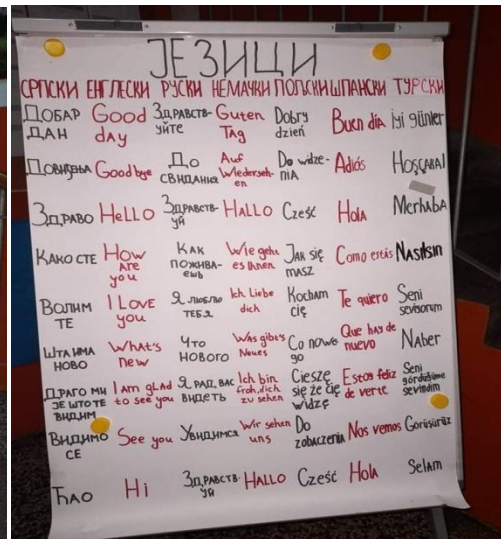 ЈЕЗИЦИ
СРПСКИ ЕНГЛЕСКИ РУСКИ НЕМАЧКИ ПОЉСКИ ШПАНСКИ ТУРСКИ
ДОБАР ДАН Good dAy ЗДРАВСТВ-УЙТЕ Guten Tag Dobry dzień Buen día iyi günler
ДОВИЂЕЊА Goodbye ДО СВИДАНИЯ Auf Wiederseh-en Do widze-niA Adiós Hoşçakal
ЗДРАВО HeLLO ЗДРАВСТВ-УЙ HALLO Cześć Hola Merhaba
КАКО СТЕ How ARe you КАК ПОЖИВА-ЕШЬ Wie geht es Ihnen JAK się masz Como estás NASIlsın
ВОЛИМ ТЕ I Love you Я люблю ТЕБЯ Ich Liebe dich Kocham cię Te quiero Seni seviyorum
ШТА ИМА НОВО What's new ЧТО НОВОГО Was gibt's Neues Co nowe go Que hay de nuevo Naber
ДРАГО МИ ЈЕ ШТО ТЕ ВИДИМ I am gLAd to see you Я РАД, ВАС ВИДЕТЬ Ich bin froh, dich zu sehen Cieszę się że cię widzę Estos feliz de verte Seni gördüğüme sevindim
ВИДИМО СЕ See you УВИДИМСЯ Wir sehen uns Do zobaczenia Nos vemos Görüşürüz
ЋАО Hi ЗДРАВСТВ-УЙ HALLO Cześć Hola Selam